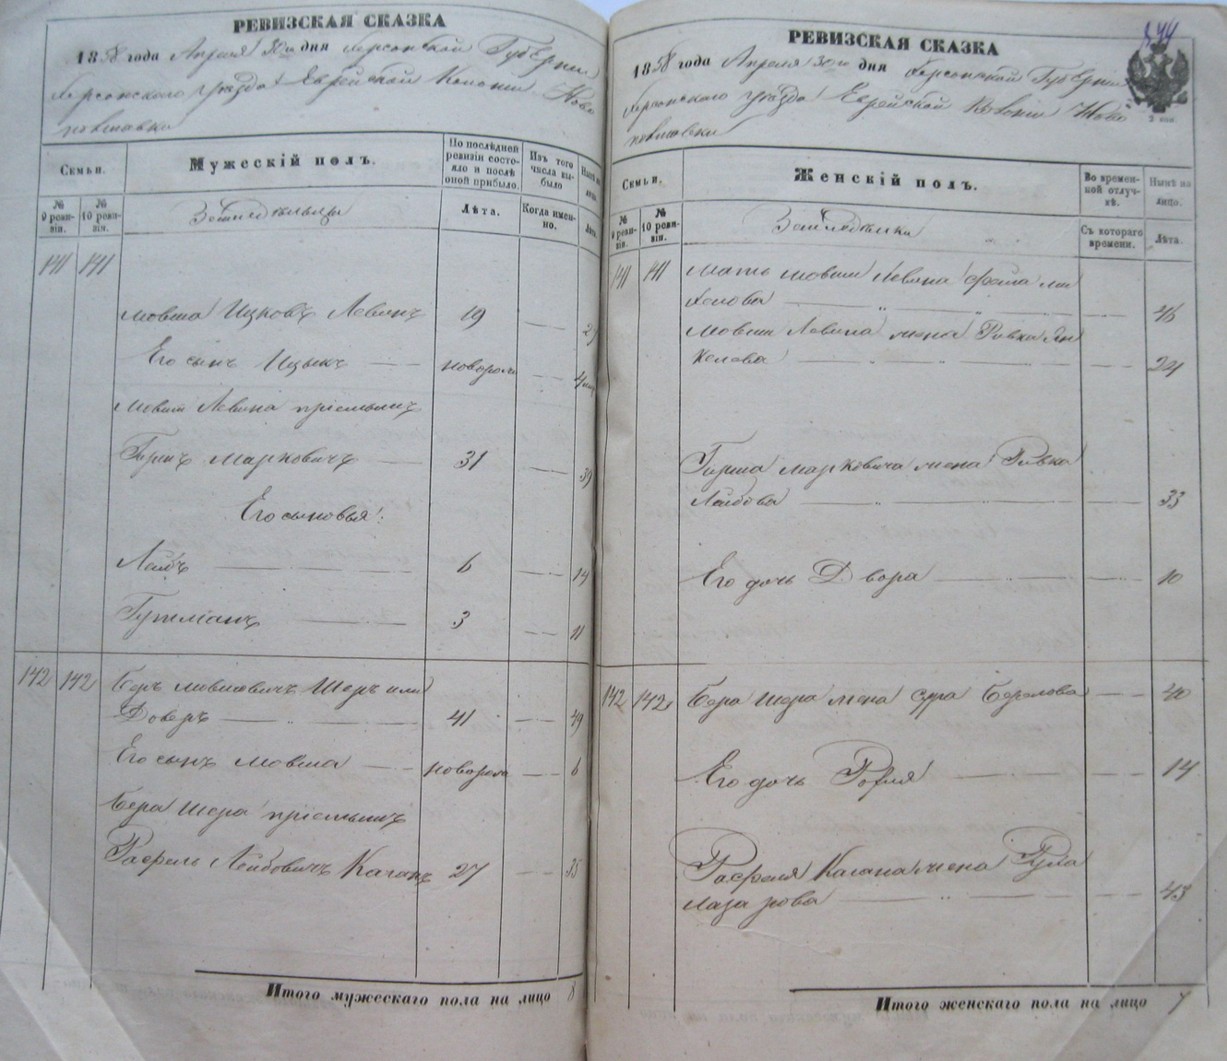 РЕВИЗСКАЯ СКАЗКА
1858 года Апреля 30го дня Херсонской Губерніи
Херсонского уезда Еврейской Колоніи Ново
полтавки
Семьи.
Мужескій полъ.
По последней ревизіи состояло и послѣ оной прибыло.
Изъ того числа выбыло
№ 9 ревизіи.
№ 10 ревизіи.
Земледѣльцы
Лѣта.
Когда именно.
141 141
Мовша Ицковъ Левинъ 19
Его сынъ Ицыкъ новорож
Мовши Левина пріемышъ
Гиршъ Марковичъ 31 39
Его сыновья:
Лейбъ 6 14
3 11
142 142 Беръ Мовшовичъ Шеръ или
Доверъ 41 49
Его сынъ Мовша новорож 6
Бера Шера пріемышъ
Рафель Лейбовичъ Каганъ 27 35
Итого мужескаго пола на лицо 8
РЕВИЗСКАЯ СКАЗКА
1858 года Апреля 30го дня Херсонской Губерніи
Херсонского уезда Еврейской Колоніи Ново
полтавки
Семьи.
Женскій полъ.
Во временной отлучкѣ.
Нынѣ на лицо.
№ 9 ревизіи.
№ 10 ревизіи.
Земледѣлки
Съ котораго времени.
Лѣта.
141 141 Мать Мовши Левина Фейга
46
Мовши Левина жена Ривка Ян
келева
Гирша Марковича жена Ривка
Лейбова 33
Его дочь Двора 10
142 142 Бера Шера жена Сура Берелова 40
Его дочь 14
Рафеля Кагана жена
Лазарова 43
Итого женскаго пола на лицо 7